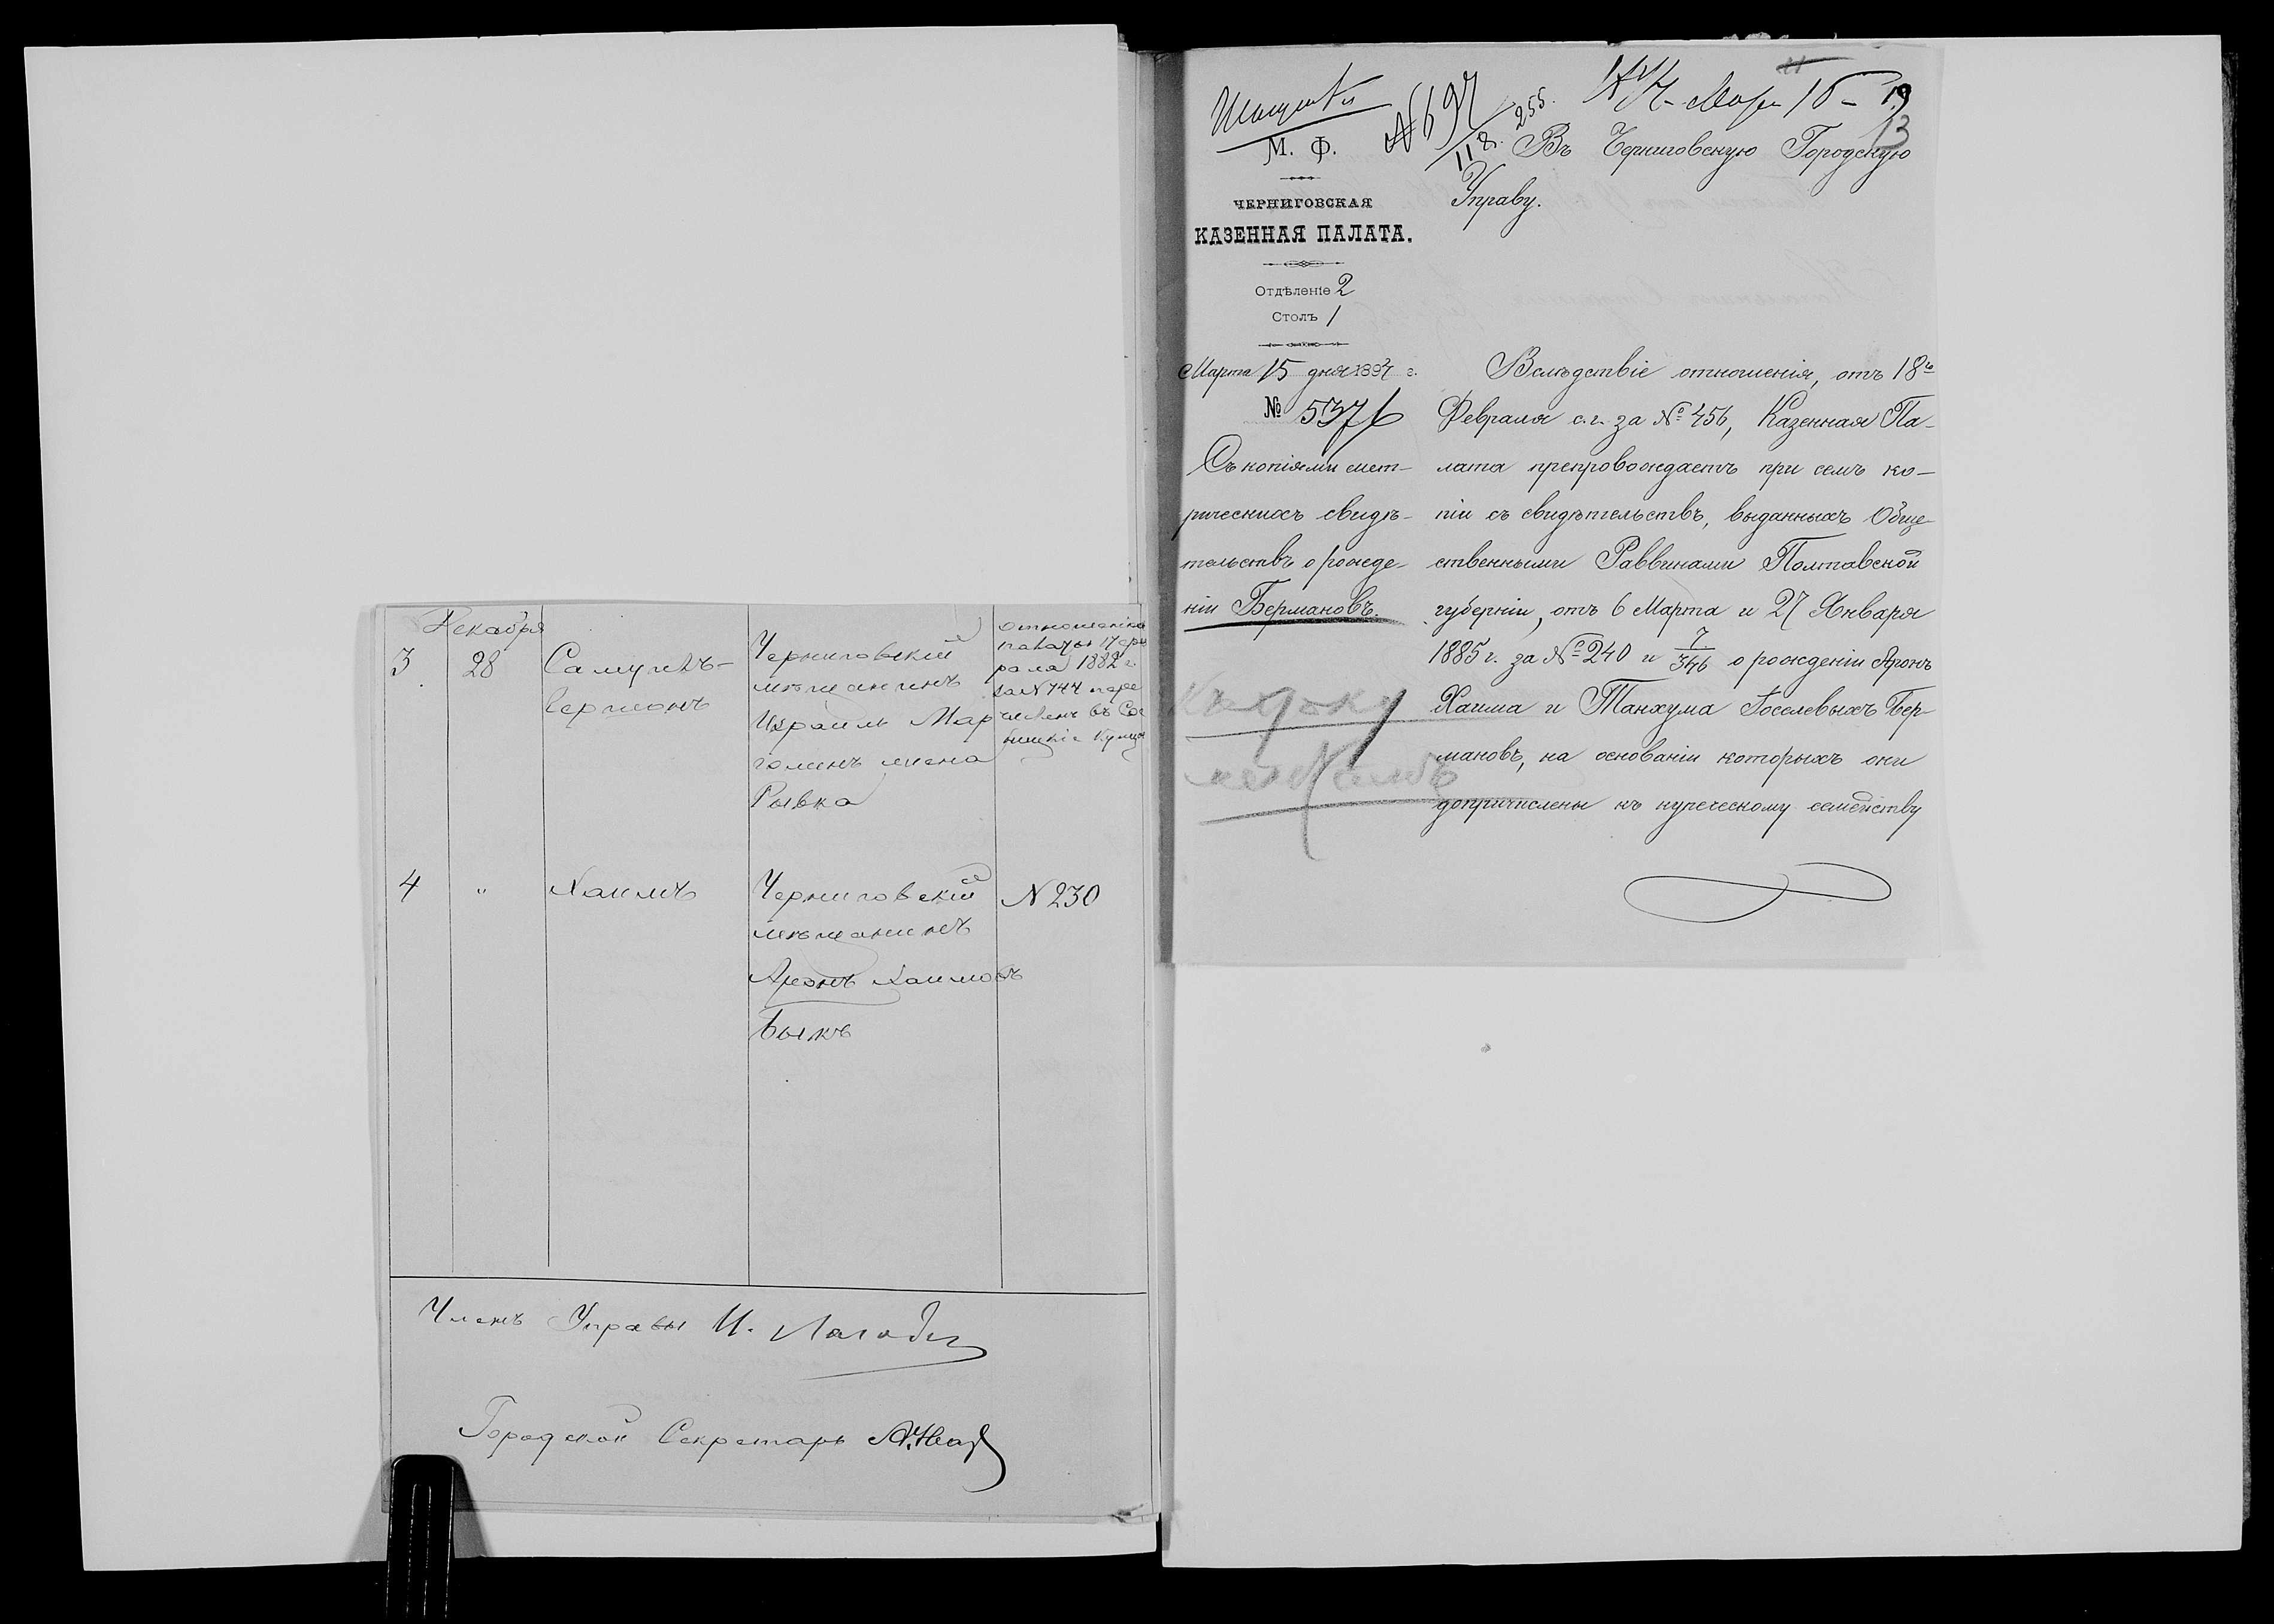 Декабря
3 28 Самуилъ-
Черниговскій
мѣщанинъ
Израиль Мар
голинъ жена
Рывка
отношеніемъ
палаты 17
1882 г.
за № 744 пере
численъ въ
4 " Хаимъ
Черниговскій
мѣщанинъ
Аронъ Хаимовъ
Быкъ
N 230
Членъ Управы И.
Городской Секретарь
№ 697
118. 255.
19
13
М. Ф.
ЧЕРНИГОВСКАЯ
КАЗЕННАЯ ПАЛАТА.
Отдѣленіе 2
Столъ 1
Марта 15 дня 1897 г.
№ 5376
Съ копіями мет-
рическихъ свидѣ-
тельствъ о рожде-
ніи Бермановъ.
Въ Черниговскую Городскую
Управу.
Вслѣдствіе отношенія, отъ 18го
Февраля с.г. за № 456, Казенная Па-
лата препровождаетъ при семъ ко-
піи съ свидѣтельствъ, выданныхъ Обще-
ственными Раввинами Полтавской
губерніи, отъ 6 Марта и 27 Января
1885 г. за № 240 и 7/346 о рожденіи Аронъ
Хаима и Танхума Іоселевыхъ Бер-
мановъ, на основаніи которыхъ они
допричислены къ купеческому семейству